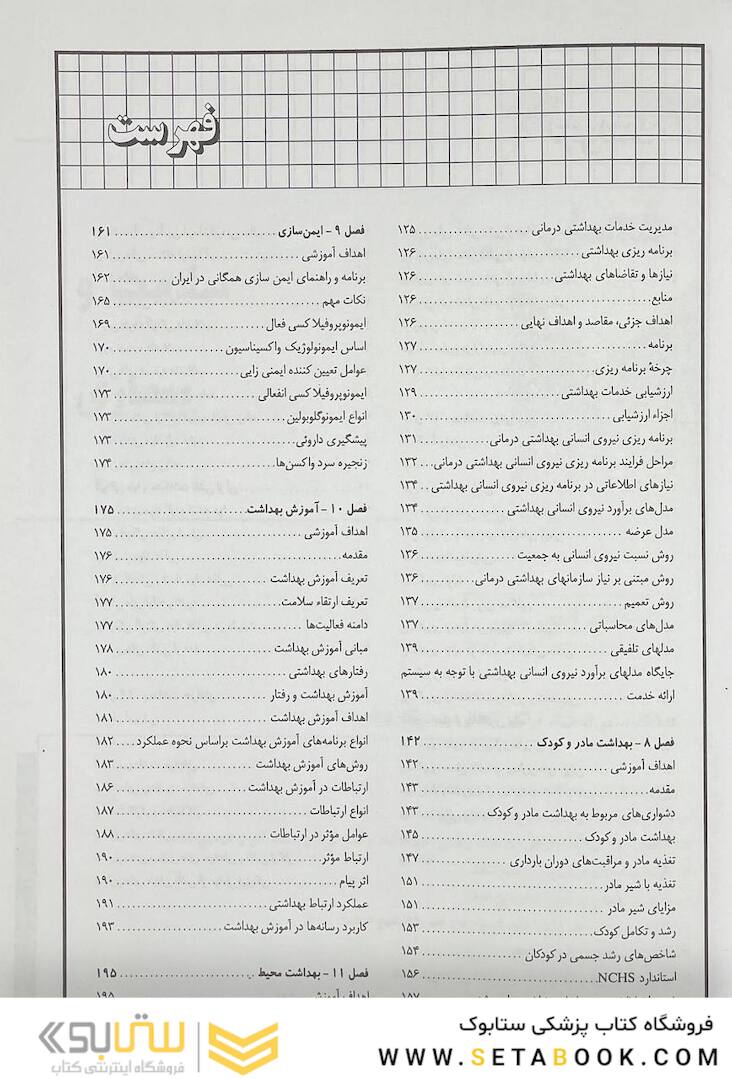 فهرست
مدیریت خدمات بهداشتی درمانی ..................... ۱۲۵
برنامه ریزی بهداشتی ..................... ۱۲۶
نیازها و تقاضاهای بهداشتی ..................... ۱۲۶
منابع ..................... ۱۲۶
اهداف جزئی، مقاصد و اهداف نهایی ..................... ۱۲۶
برنامه ..................... ۱۲۷
چرخهٔ برنامه ریزی ..................... ۱۲۷
ارزشیابی خدمات بهداشتی ..................... ۱۲۹
اجزاء ارزشیابی ..................... ۱۳۰
برنامه ریزی نیروی انسانی بهداشتی درمانی ........... ۱۳۱
مراحل فرایند برنامه ریزی نیروی انسانی بهداشتی درمانی... ۱۳۲
نیازهای اطلاعاتی در برنامه ریزی نیروی انسانی بهداشتی .. ۱۳۴
مدل‌های برآورد نیروی انسانی بهداشتی ..................... ۱۳۴
مدل عرضه ..................... ۱۳۵
روش نسبت نیروی انسانی به جمعیت ..................... ۱۳۶
روش مبتنی بر نیاز سازمانهای بهداشتی درمانی ........... ۱۳۶
روش تعمیم ..................... ۱۳۷
مدل‌های محاسباتی ..................... ۱۳۷
مدلهای تلفیقی ..................... ۱۳۹
جایگاه مدلهای برآورد نیروی انسانی بهداشتی با توجه به سیستم
ارائه خدمت ..................... ۱۳۹
فصل ۸ - بهداشت مادر و کودک ..................... ۱۴۲
اهداف آموزشی ..................... ۱۴۲
مقدمه ..................... ۱۴۳
دشواری‌های مربوط به بهداشت مادر و کودک ........... ۱۴۳
بهداشت مادر و کودک ..................... ۱۴۵
تغذیه مادر و مراقبت‌های دوران بارداری ........... ۱۴۷
تغذیه با شیر مادر ..................... ۱۵۱
مزایای شیر مادر ..................... ۱۵۱
رشد و تکامل کودک ..................... ۱۵۳
شاخص‌های رشد جسمی در کودکان ..................... ۱۵۴
استاندارد NCHS ..................... ۱۵۶
فصل ۹ - ایمن‌سازی ..................... ۱۶۱
اهداف آموزشی ..................... ۱۶۱
برنامه و راهنمای ایمن سازی همگانی در ایران ........... ۱۶۲
نکات مهم ..................... ۱۶۵
ایمونوپروفیلاکسی فعال ..................... ۱۶۹
اساس ایمونولوژیک واکسیناسیون ..................... ۱۷۰
عوامل تعیین کننده ایمنی زایی ..................... ۱۷۰
ایمونوپروفیلاکسی انفعالی ..................... ۱۷۳
انواع ایمونوگلوبولین ..................... ۱۷۳
پیشگیری داروئی ..................... ۱۷۳
زنجیره سرد واکسن‌ها ..................... ۱۷۴
فصل ۱۰ - آموزش بهداشت ..................... ۱۷۵
اهداف آموزشی ..................... ۱۷۵
مقدمه ..................... ۱۷۶
تعریف آموزش بهداشت ..................... ۱۷۶
تعریف ارتقاء سلامت ..................... ۱۷۷
دامنه فعالیت‌ها ..................... ۱۷۷
مبانی آموزش بهداشت ..................... ۱۷۸
رفتارهای بهداشتی ..................... ۱۸۰
آموزش بهداشت و رفتار ..................... ۱۸۰
اهداف آموزش بهداشت ..................... ۱۸۱
انواع برنامه‌های آموزش بهداشت براساس نحوه عملکرد .... ۱۸۲
روش‌های آموزش بهداشت ..................... ۱۸۳
ارتباطات در آموزش بهداشت ..................... ۱۸۶
انواع ارتباطات ..................... ۱۸۷
عوامل مؤثر در ارتباطات ..................... ۱۸۸
ارتباط مؤثر ..................... ۱۹۰
اثر پیام ..................... ۱۹۰
عملکرد ارتباط بهداشتی ..................... ۱۹۱
کاربرد رسانه‌ها در آموزش بهداشت ..................... ۱۹۳
فصل ۱۱ - بهداشت محیط ..................... ۱۹۵
اهداف آموزشی ..................... ۱۹۵
فروشگاه کتاب پزشکی ستابوک
WWW.SETABOOK.COM
ستابوک
فروشگاه اینترنتی کتاب